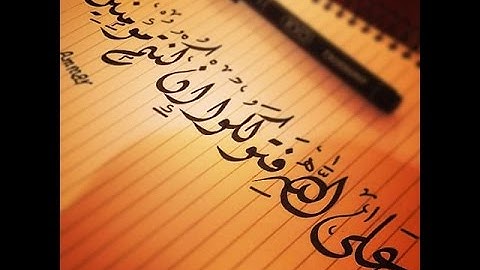 وعلى الله فتوكلوا إن كنتم مؤمنين
Ammer